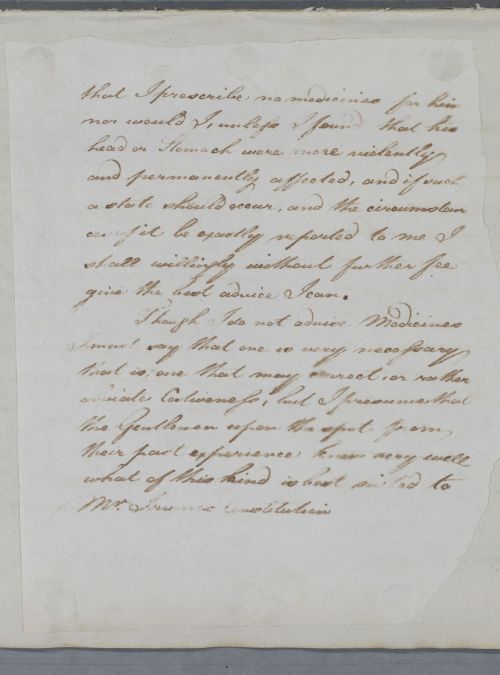 that I prescribe no medicines for him
nor would I, unless I found that his
head or Stomach were more violently
and permanently affected, and if such
a state should occur, and the circumstan
ces of it be exactly reported to me I
shall willingly without further fee
give the best advice I can.
Though I do not advise Medicines
I must say that one is very necessary
that is, one that may correct or rather
obviate Costiveness, but I presume that
the Gentlemen upon the spot from
their past experience know very well
what of this kind is best suited to
Mr. constitution